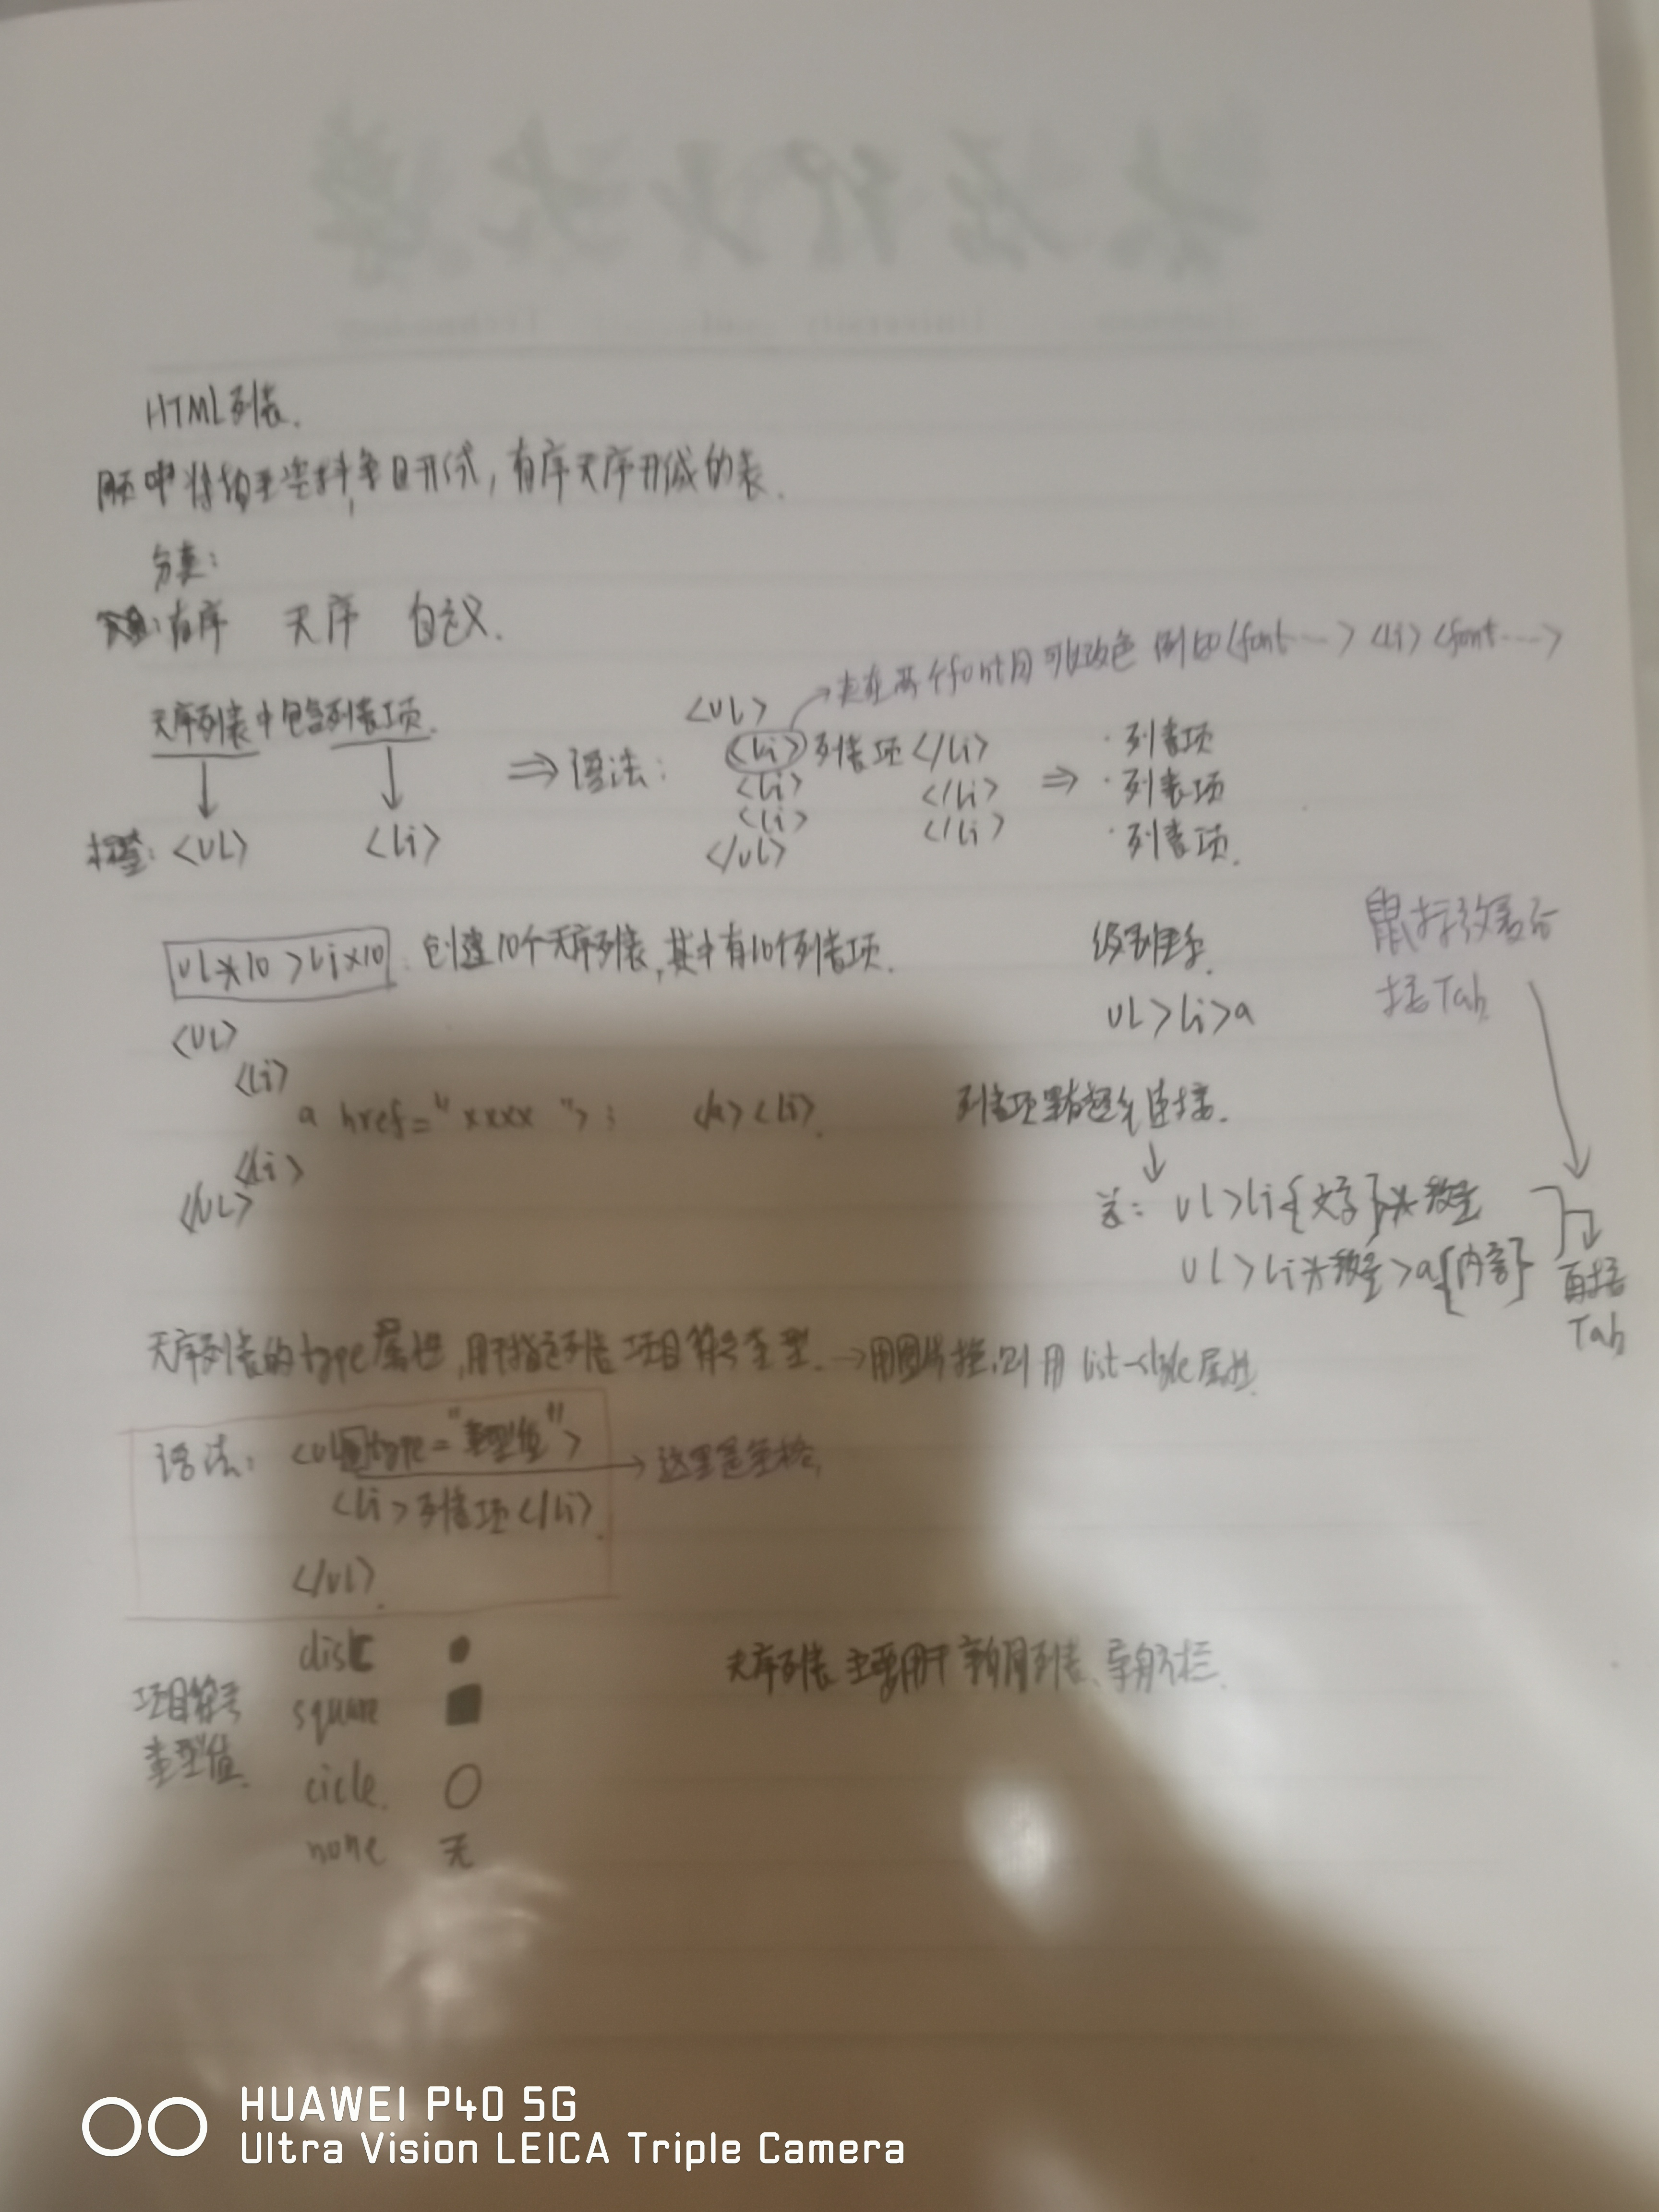 HTML列表.
网页中将相关资料条目形式,有序无序形成的表.
分类:
有序 无序 自定义.
无序列表中包含列表项.
标签: <ul> <li>
⇒语法:
<ul> →夹在两个font间可以改色 例如<font……> <li> <font……>
<li>列表项</li> ⇒ ·列表项
<li> </li> ·列表项
<li> </li> ·列表项.
</ul>
ul*10>li*10: 创建10个无序列表,其中有10个列表项.
级别关系.
ul>li>a
鼠标放最后
按Tab
<ul>
<li>
a href="xxxx">; </a><li>.
<li>
</ul>
列表项里有超链接.
↓
ul>li{文字}*数量
ul>li*数量>a{内容}
直接
Tab
无序列表的type属性,用于指定列表项目符号类型.→用图片 则用list-style属性.
语法: <ul type="类型值"> →这里是空格.
<li>列表项</li>.
</ul>.
项目符号
类型值.
disc ●
square ■
cicle. ○
none 无
无序列表主要用于新闻列表、导航栏.
HUAWEI P40 5G
Ultra Vision LEICA Triple Camera